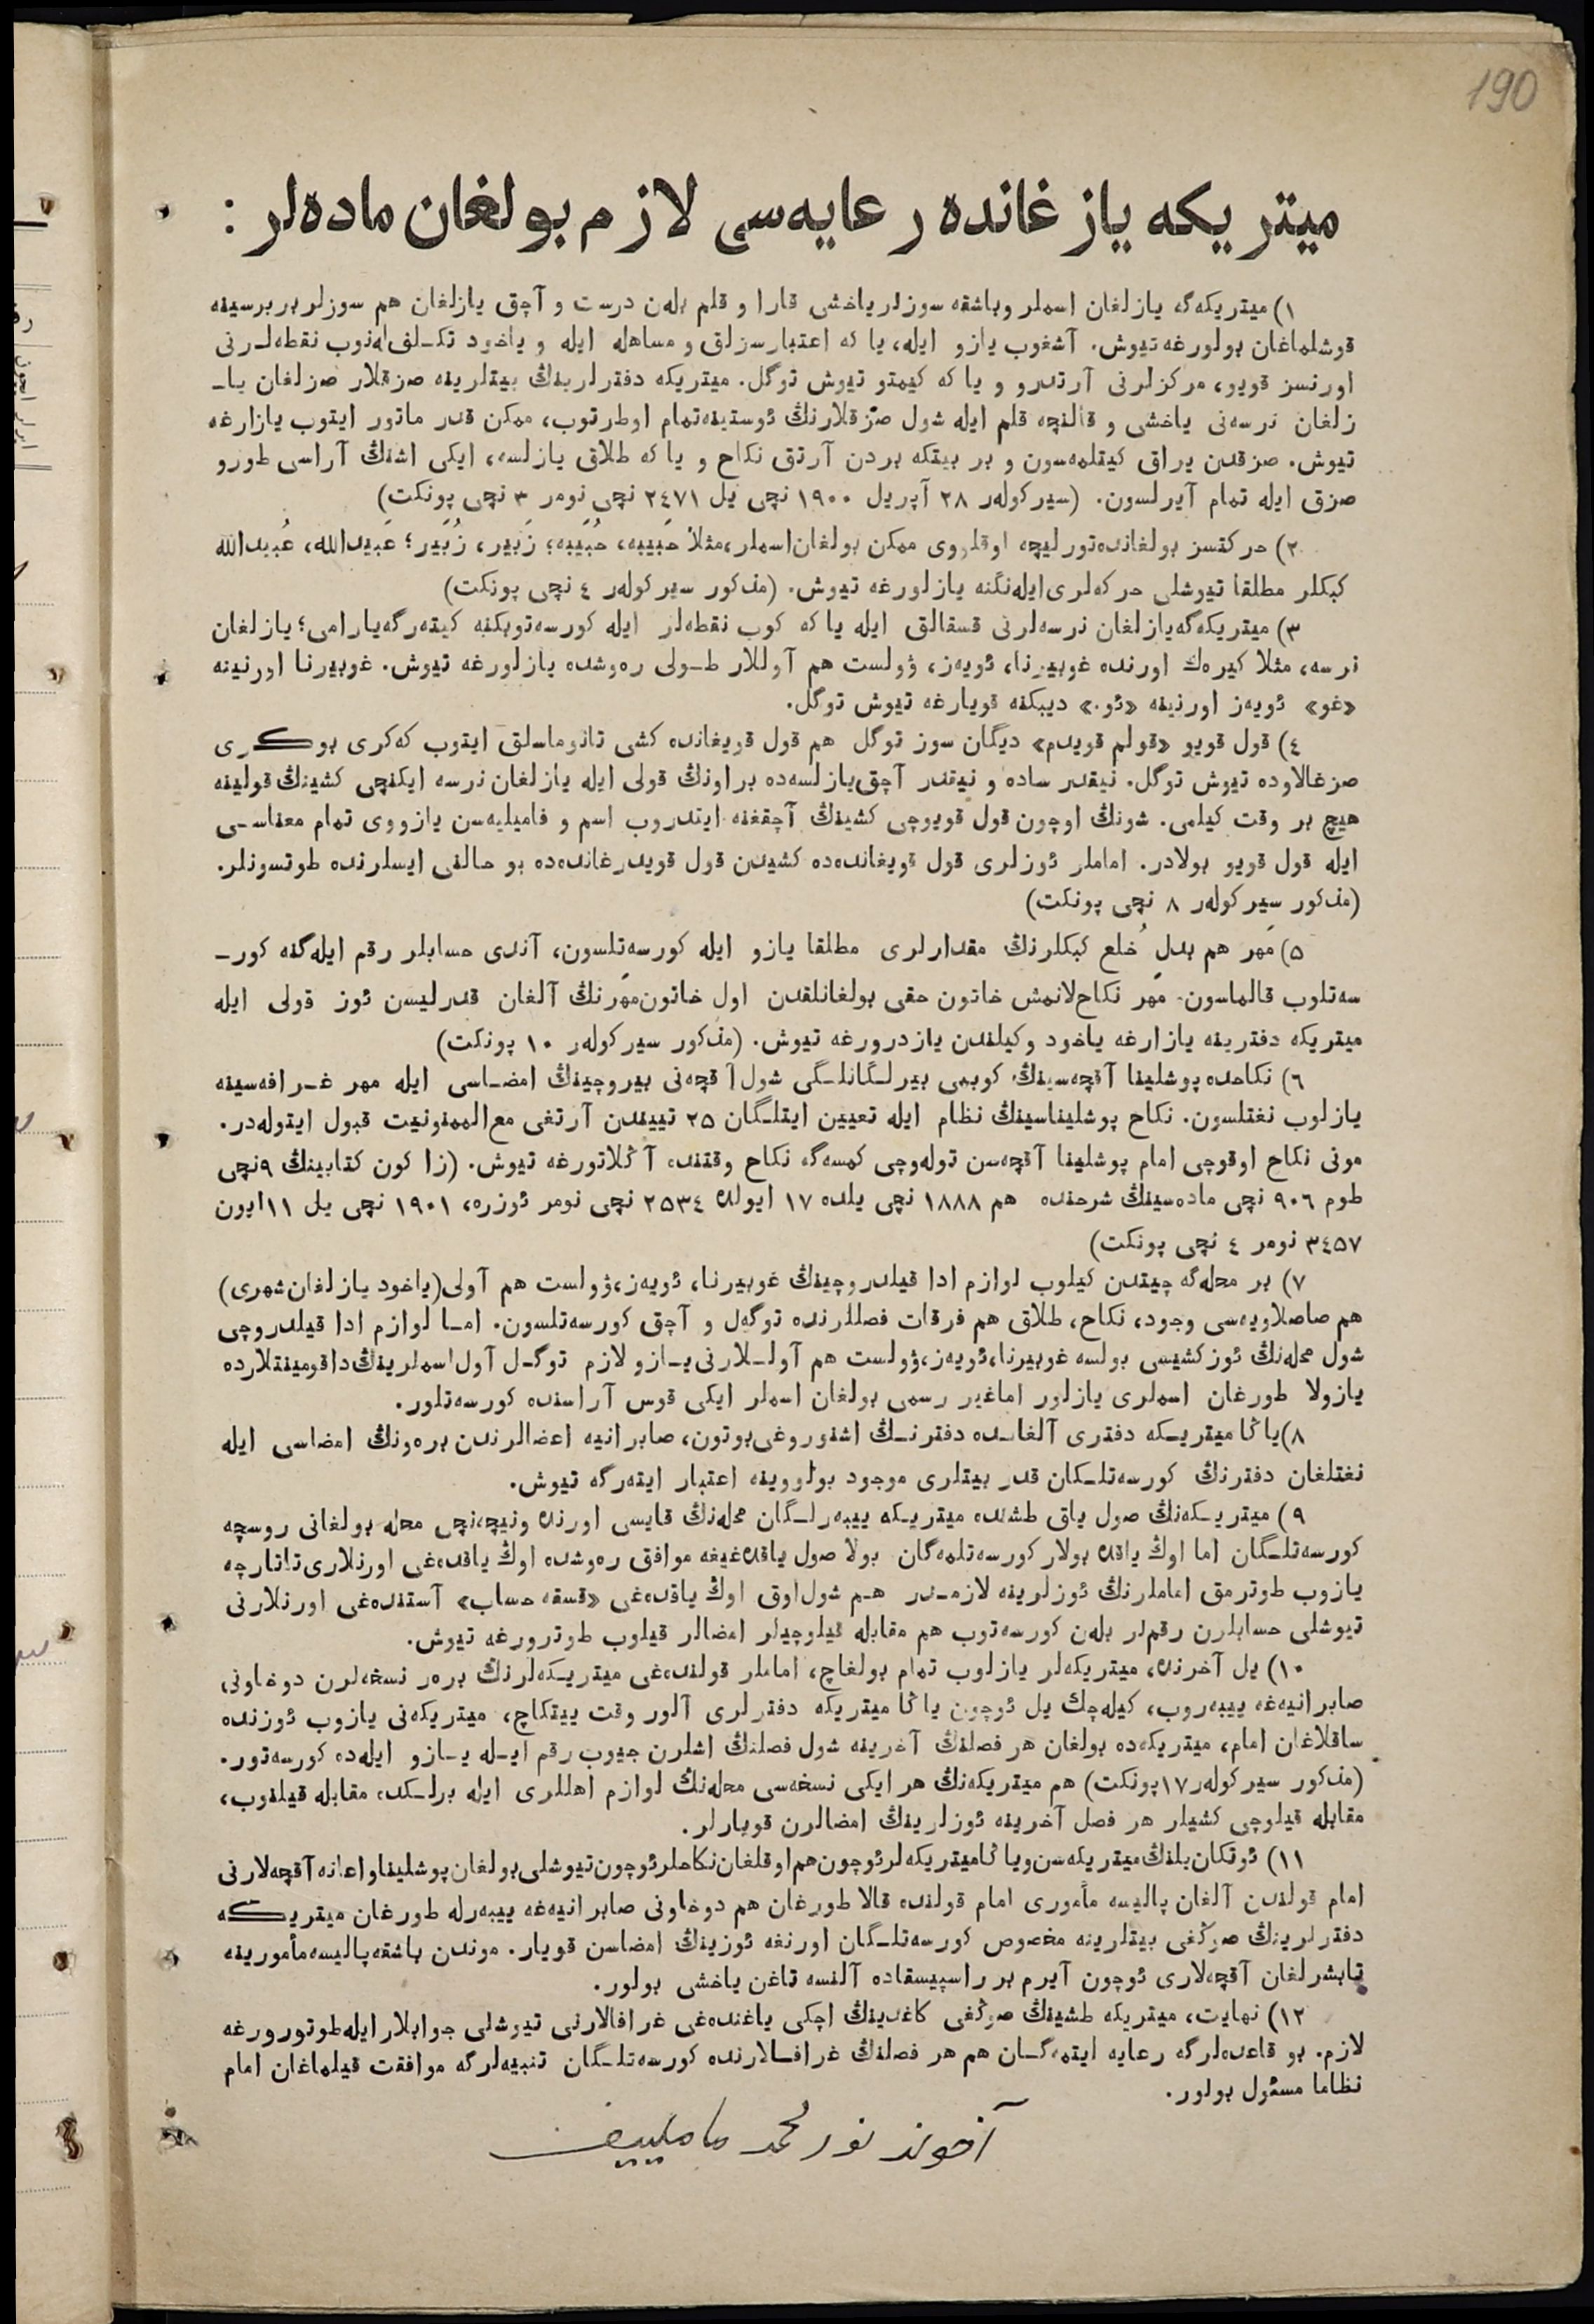 190
میتریكه یازغانده رعایه‌سی لازم بولغان ماده‌لر :
١) میتریكه‌گه یازلغان اسملر وباشقه سوزلر یاخشی قارا و قلم بلەن درست و آچق یازلغان هم سوزلر بربرسینه
قوشلماغان بولورغه تیوش. آشغوب یازو ایله، یا كه اعتبارسزلق و مساهله ایله و یاخود تكـلفله‌نوب نقطه‌لـرنی
اورنسز قویو، مركزلرنی آرتدرو و یا كه كیمتو تیوش توگل. میتریكه دفترلرینڭ بیتلرینه صزقلار صزلغان یا-
زلغان نرسه‌نی یاخشی و قالنچه قلم ایله شول صزقلارنڭ ئوستینه‌تمام اوطرتوب، ممكن قدر ماتور ایتوب یازارغه
تیوش. صزقدن یراق كیتلمه‌سون و بر بیتكه بردن آرتق نكاح و یا كه طلاق یازلسه، ایكی اشنڭ آراسی طورو
صزق ایله تمام آیرلسون. (سیركولەر ٢٨ آپریل ١٩٠٠ نچی یل ٢٤٧١ نچی نومر ٣ نچی پونكت)
٢) حركتسز بولغانده‌تورلیچه اوقلووی ممكن بولغان‌اسملر،مثلا حَبیبه، حُبَیبه؛ زَبیر، زُبَیر؛ عَبیدالله، عُبیدالله
كبكلر مطلقا تیوشلی حركه‌لری‌ایله‌نگنه یازلورغه تیوش. (مذكور سیركولەر ٤ نچی پونكت)
٣) میتریكه‌گه‌یازلغان نرسه‌لرنی قسقالق ایله یا كه كوب نقطه‌لر ایله كورسه‌توبكنه كیته‌رگه‌یارامی؛ یازلغان
نرسه، مثلا كیرەك اورنده غوبیرنا، ئویەز، ۋولست هم آوللار طـولی رەوشده یازلورغه تیوش. غوبیرنا اورنینه
«غو» ئویەز اورنینه «ئو.» دیبكنه قویارغه تیوش توگل.
٤) قول قویو «قولم قویدم» دیگان سوز توگل هم قول قویغانده كشی تانوماسلق ایتوب كەكری بوكـــری
صزغالاوده تیوش توگل. نیقدر ساده و نیقدر آچق‌یازلسه‌ده براونڭ قولی ایله یازلغان نرسه ایكنچی كشینڭ قولینه
هیچ بر وقت كیلمی. شونڭ اوچون قول قویوچی كشینڭ آچقغنه ایتدروب اسم و فامیلیه‌سن یازووی تمام معناسـی
ایله قول قویو بولادر. اماملر ئوزلری قول قویغانده‌ده كشیدن قول قویدرغانده‌ده بو حالنی ایسلرنده طوتسونلر.
(مذكور سیركولەر ٨ نچی پونكت)
٥) مَهر هم بدلِ خُلع كبكلرنڭ مقدارلری مطلقا یازو ایله كورسه‌تلسون، آندی حسابلر رقم ایله‌گنه كور-
سه‌تلوب قالماسون. مَهر نكاح‌لانمش خاتون حقی بولغانلقدن اول خاتون‌مَهرنڭ آلغان قدرلیسن ئوز قولی ایله
میتریكه دفترینه یازارغه یاخود وكیلندن یازدرورغه تیوش. (مذكور سیركولەر ١٠ پونكت)
٦) نكاحده پوشلینا آقچه‌سینڭ كوبمی بیرلـگانلـگی شول آقچه‌نی بیروچینڭ امضـاسی ایله مهر غـرافه‌سینه
یازلوب نغتلسون. نكاح پوشلیناسینڭ نظام ایله تعیین ایتلـگان ٢٥ تییندن آرتغی مع‌الممنونیت قبول ایتوله‌در.
مونی نكاح اوقوچی امام پوشلینا آقچه‌سن توله‌وچی كمسه‌گه نكاح وقتنده آڭلاتورغه تیوش. (زاكون كتابینڭ ٩نچی
طوم ٩٠٦ نچی ماده‌سینڭ شرحنده هم ١٨٨٨ نچی یلده ١٧ ایولده ٢٥٣٤ نچی نومر ئوزره، ١٩٠١ نچی یل ١١ایون
٣٤٥٧ نومر ٤ نچی پونكت)
٧) بر محله‌گه چیتدن كیلوب لوازم ادا قیلدروچینڭ غوبیرنا، ئویەز،ۋولست هم آولی(یاخود یازلغان‌شهری)
هم صاصلاویه‌سی وجود، نكاح، طلاق هم فرقات فصللرنده توگەل و آچق كورسه‌تلسون. امـا لوازم ادا قیلدروچی
شول محله‌نڭ ئوزكشیسی بولسه غوبیرنا،ئویەز،ۋولست هم آولـلارنی‌یـازو لازم توگـل آول‌اسملرینڭ‌داقومینتلارده
یازولا طورغان اسملری یازلور اماغیر رسمی بولغان اسملر ایكی قوس آراسنده كورسه‌تلور.
٨)یاڭا میتریـكه دفتری آلغانـده دفترنـڭ اشنوروغی‌بوتون، صابرانیه اعضالرندن بره‌ونڭ امضاسی ایله
نغتلغان دفترنڭ كورسه‌تلـكان قدر بیتلری موجود بولووینه اعتبار ایته‌رگه تیوش.
٩) میتریـكه‌نڭ صول یاق طشنده میتریـكه ییبه‌رلـگان محله‌نڭ قایسی اورنده ونیچه‌نچی محله بولغانی روسچه
كورسه‌تلـگان اما اوڭ یاقده بولار كورسه‌تلمه‌گان بولا صول یاقده‌غیغه موافق رەوشده اوڭ یاقده‌غی اورنلاری‌تاتارچه
یازوب طوترمق اماملرنڭ ئوزلرینه لازمـدر هـم شول‌اوق اوڭ یاقده‌غی «قسقه حساب» آستنده‌غی اورنلارنی
تیوشلی حسابلرن رقملر بلەن كورسه‌توب هم مقابله قیلوچیلر امضالر قیلوب طوترورغه تیوش.
١٠) یل آخرنده، میتریكه‌لر یازلوب تمام بولغاچ، اماملر قولنده‌غی میتریـكه‌لرنڭ برەر نسخه‌لرن دوخاونی
صابرانیه‌غه ییبه‌روب، كیله‌چك یل ئوچون یاڭا میتریكه دفترلری آلور وقت ییتكاچ، میتریكه‌نی یازوب ئوزنده
ساقلاغان امام، میتریكه‌ده بولغان هر فصلنڭ آخرینه شول فصلنڭ اشلرن جیوب رقم ایـله یـازو ایله‌ده كورسه‌تور.
(مذكور سیركولەر١٧پونكت) هم میتریكه‌نڭ هر ایكی نسخه‌سی محله‌نڭ لوازم اهللری ایله برلـكده مقابله قیلنوب،
مقابله قیلوچی كشیلر هر فصل آخرینه ئوزلرینڭ امضالرن قویارلر.
١١) ئوتكان‌یلنڭ‌میتریكه‌سن‌ویاڭامیتریكه‌لرئوچون‌هم‌اوقلغان‌نكاحلرئوچون‌تیوشلی‌بولغان‌پوشلیناواعانه‌آقچه‌لارنی
امام قولندن آلغان پالیسه مأموری امام قولنده قالا طورغان هم دوخاونی صابرانیه‌غه ییبه‌رله طورغان میتریـــكه
دفترلرینڭ صوڭغی بیتلرینه مخصوص كورسه‌تلـگان اورنغه ئوزینڭ امضاسن قویار. موندن باشقه‌پالیسه‌مأمورینه
تابشرلغان آقچه‌لاری ئوچون آیرم بر راسپیسقاده آلنسه تاغن یاخشی بولور.
١٢) نهایت، میتریكه طشینڭ صوڭغی كاغدینڭ اچكی یاغنده‌غی غرافالارنی تیوشلی جوابلارایله‌طوتورورغه
لازم. بو قاعده‌لرگه رعایه ایتمه‌گـان هم هر فصلنڭ غرافـالارنده كورسه‌تلـگان تنبیه‌لرگه موافقت قیلماغان امام
نظاما مسئول بولور.
آخوند نورمحمد ماملییف